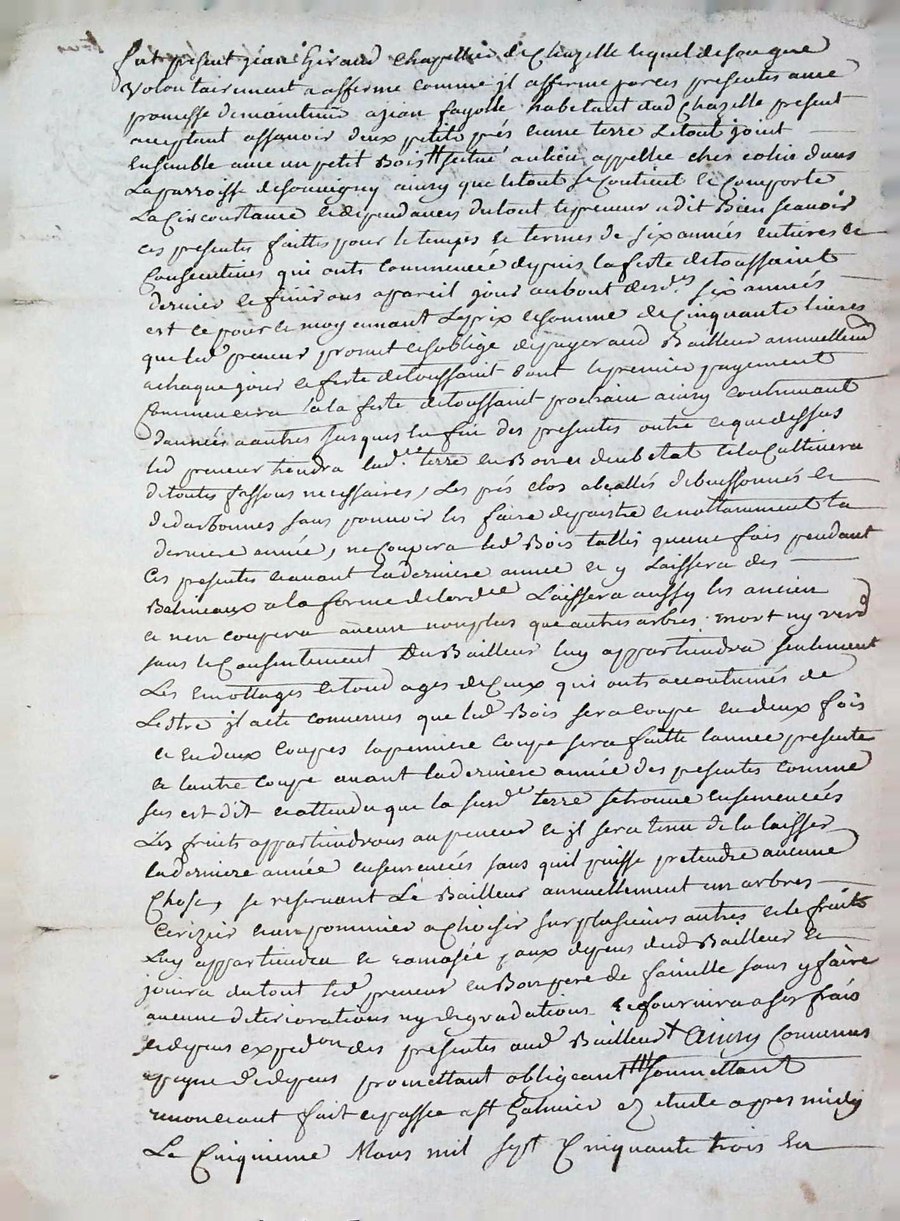 fut present jean Giraud chapellier de Chazelle lequel de son gré
Volontairement a afferme comme jl afferme par ces presentes avec
promesse de maintenir a jean fayolle habitant dud Chazelle present
acceptant assavoir deux petits prés et une terre le tout joint
Ensemble avec un petit Bois situé au lieu appellée ches colin dans
La parroisse de souvigny ainsy que le tout se Contient et Comporte
La Circonstance et dependances du tout le preneur a dit Bien sçavoir
ces presentes faittes pour le temps et termes de six années entieres et
Consecutives qui onts commencée depuis la feste de toussaint
dernier et finirons a pareil jour au bout desds six années
est ce pour et moyennant Le prix et somme de Cinquante livres
que led preneur promet et soblige de payer aud Bailleur annuellem
a chaque jour et feste de toussaint dont le premier payement
Commencera a la feste de toussaint prochain ainsy continuant
dannées a autres jusques la fin des presentes outre ce que dessus
led preneur tiendra lade terre en Bon et deub etat et la Cultivera
de toutes fassons necessaires, Les prés clos et allés debuissonnés et
dedarbonnés sans pouvoir les faire depaistre et nottamment la
derniere année, ne Coupera led Bois tallis quune fois pendant
Ces presentes et avant la derniere année et y Laissera des
Baliveaux a la forme de lordce Laissera aussy les ancien
et nen coupera aucun nomplus que autres arbres mort ny verd
sans le Consentement Du Bailleur luy appartiendra seulement
Les emottages et tond ages de Ceux qui onts accoutumés de
Lestre jl a ete convenus que led Bois sera coupe en deux fois
et en deux Coupes la premiere coupe sera faitte lannee presente
et lautre coupe avant la derniere année des presentes comme
sus est dit et attendu que la susde terre se trouve ensemencées
Les fruits appartiendrons au preneur et jl sera tenu de la laisser
la derniere année ensemencées sans quil puisse pretendre aucune
Chose, se reservant Le Bailleur annuellement un arbres
Cerizier et un pommier a Choisir sur plusieurs autres et le fruits
Luy appartiendra et ramasée aux depens dud Bailleur et
jouira du tout led preneur en Bon pere de famille sans y faire
aucune deteriorations ny degradations et fournira a ses frais
et depens expedon des presentes aud Bailleur Ainsy Convenus
a peyne de depens promettant obligeant soumettant
renonceant fait et passée a st Galmier ez etude apres midy
Le Cinquieme Mars mil sept Cinquante trois En